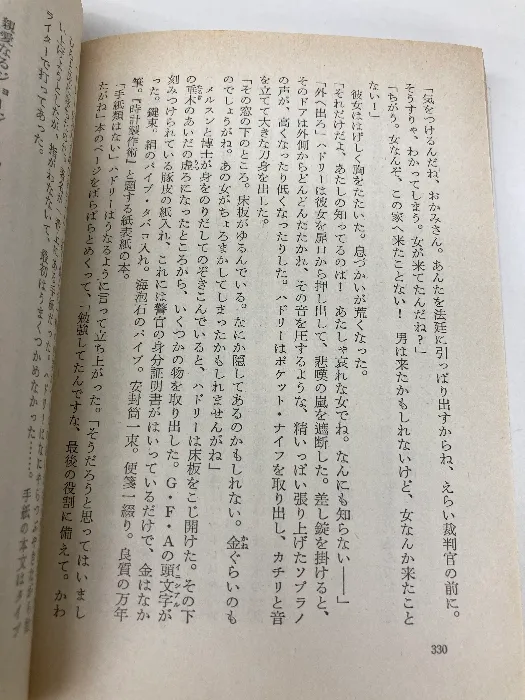 「気をつけるんだね、おかみさん。あんたを法廷に引っぱり出すからね、えらい裁判官の前に。
そうすりゃ、わかってしまう。女が来てたんだね?」
「ちがう。女なんぞ、この家へ来たことない! 男は来たかもしれないけど、女なんか来たこと
ない!」
彼女ははげしく胸をたたいた。息づかいが荒くなった。
「それだけだよ、あたしの知ってるのは! あたしゃ哀れな女でね。なんにも知らない――」
「外へ出ろ」ハドリーは彼女を扉口から押し出して、悲嘆の嵐を遮断した。差し錠を掛けると、
そのドアは外側からどんどんたたかれ、その音を圧するような、精いっぱい張り上げたソプラノ
の声が、高くなったり低くなったりした。ハドリーはポケット・ナイフを取り出し、カチリと音
を立てて大きな刀身を出した。
「その窓の下のところ。床板がゆるんでいる。なにか隠してあるのかもしれない。金ぐらいのも
のでしょうがね。あの女がちょろまかしてしまったかもしれませんがね」
メルスンと博士が身をのりだしてのぞきこんでいると、ハドリーは床板をこじ開けた。その下
の垂木のあいだの虚ろになったところから、いくつかの物を取り出した。G・F・Aの頭文字が
刻みつけられている豚皮の紙入れ、これには警官の身分証明書がはいっているだけで、金はなか
った。鍵束。絹のパイプ・タバコ入れ。海泡石のパイプ。安封筒一束。便箋一綴り。良質の万年
筆。『時計製作術』と題する紙表紙の本。
「手紙類はない」ハドリーはうなるように言って立ち上がった。「そうだろうと思ってはいまし
たがね」本のページをぱらぱらとめくって、「勉強してたんですな、最後の役割に備えて。かわ
ライターで打ってあった。
親愛なるジョージ
330